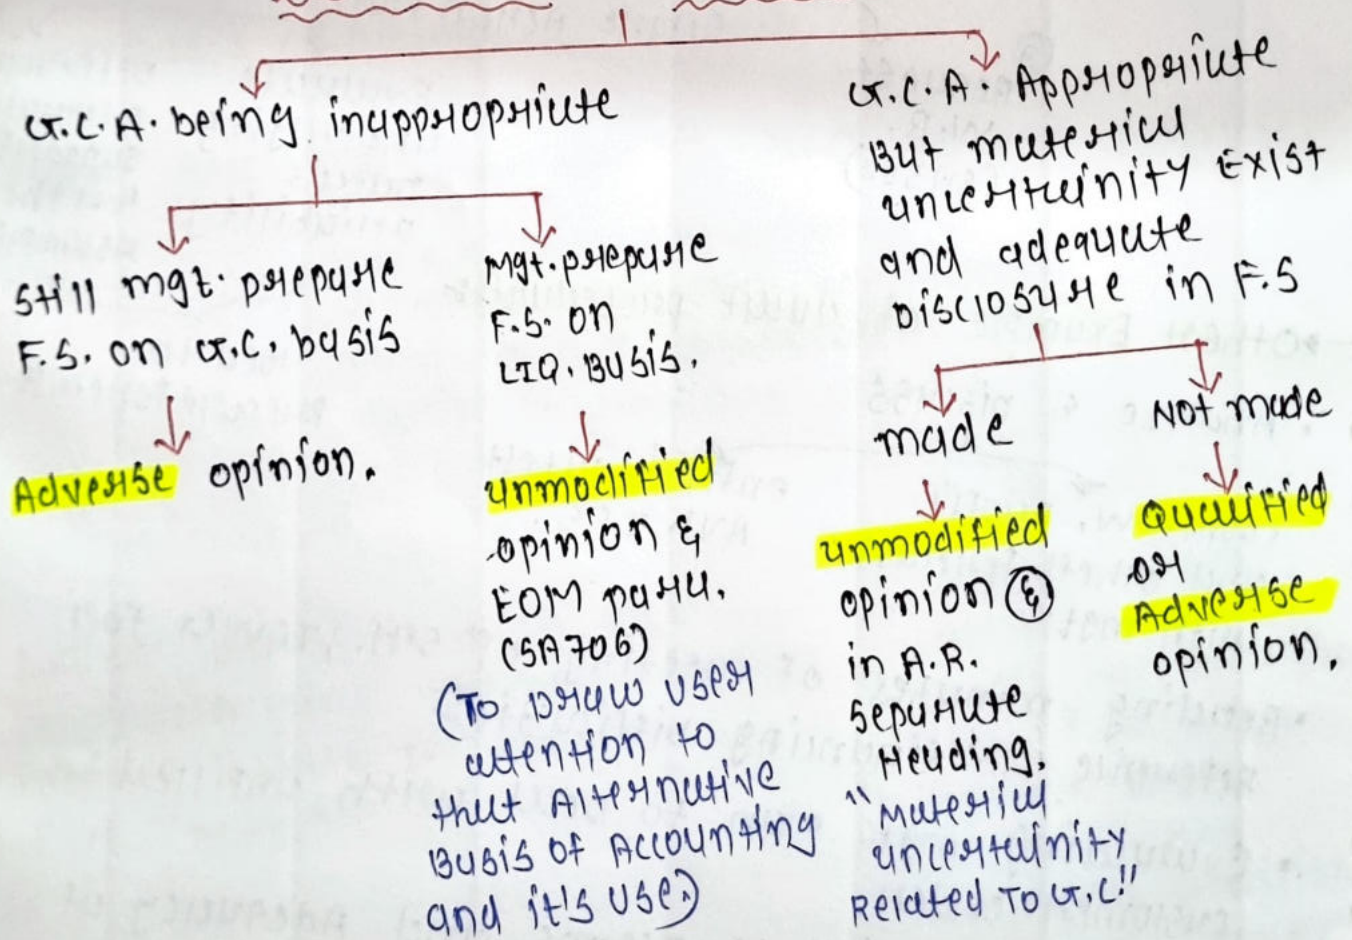 G.C.A. being inappropriate
Still mgt. prepare
F.S. on G.C. basis
Adverse opinion.
Mgt. prepare
F.S. on
LIQ. Basis.
unmodified
opinion &
EOM para.
(SA 706)
(To Draw user
attention to
that Alternative
Basis of Accounting
and it's use.)
G.C.A. Appropriate
But material
uncertainity Exist
and adequate
Disclosure in F.S
made
unmodified
opinion &
in A.R.
separate
Heading.
"material
uncertainity
Related To G.C!"
Not made
Qualified
or
Adverse
opinion.